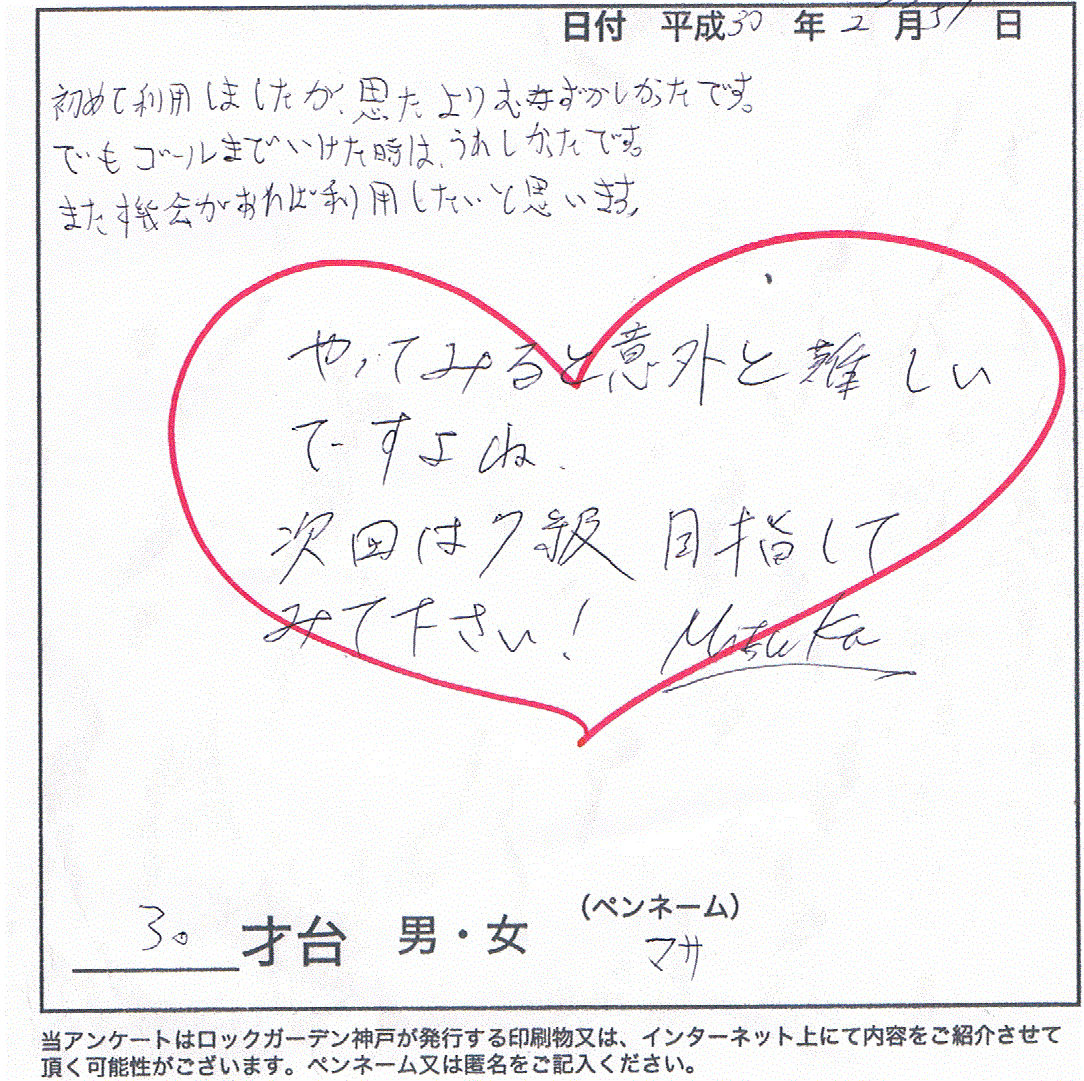 日付 平成30 年 2 月 日
初めて利用しましたが、思たよりむずかしかったです。
でもゴールまでいけた時は、うれしかたです。
また機会があれば利用したいと思います。
やってみると意外と難しい
ですよね。
次回は7級 目指して
みて下さい! Mitsuka
30 才台 男・女 (ペンネーム)
マサ
当アンケートはロックガーデン神戸が発行する印刷物又は、インターネット上にて内容をご紹介させて
頂く可能性がございます。ペンネーム又は匿名をご記入ください。